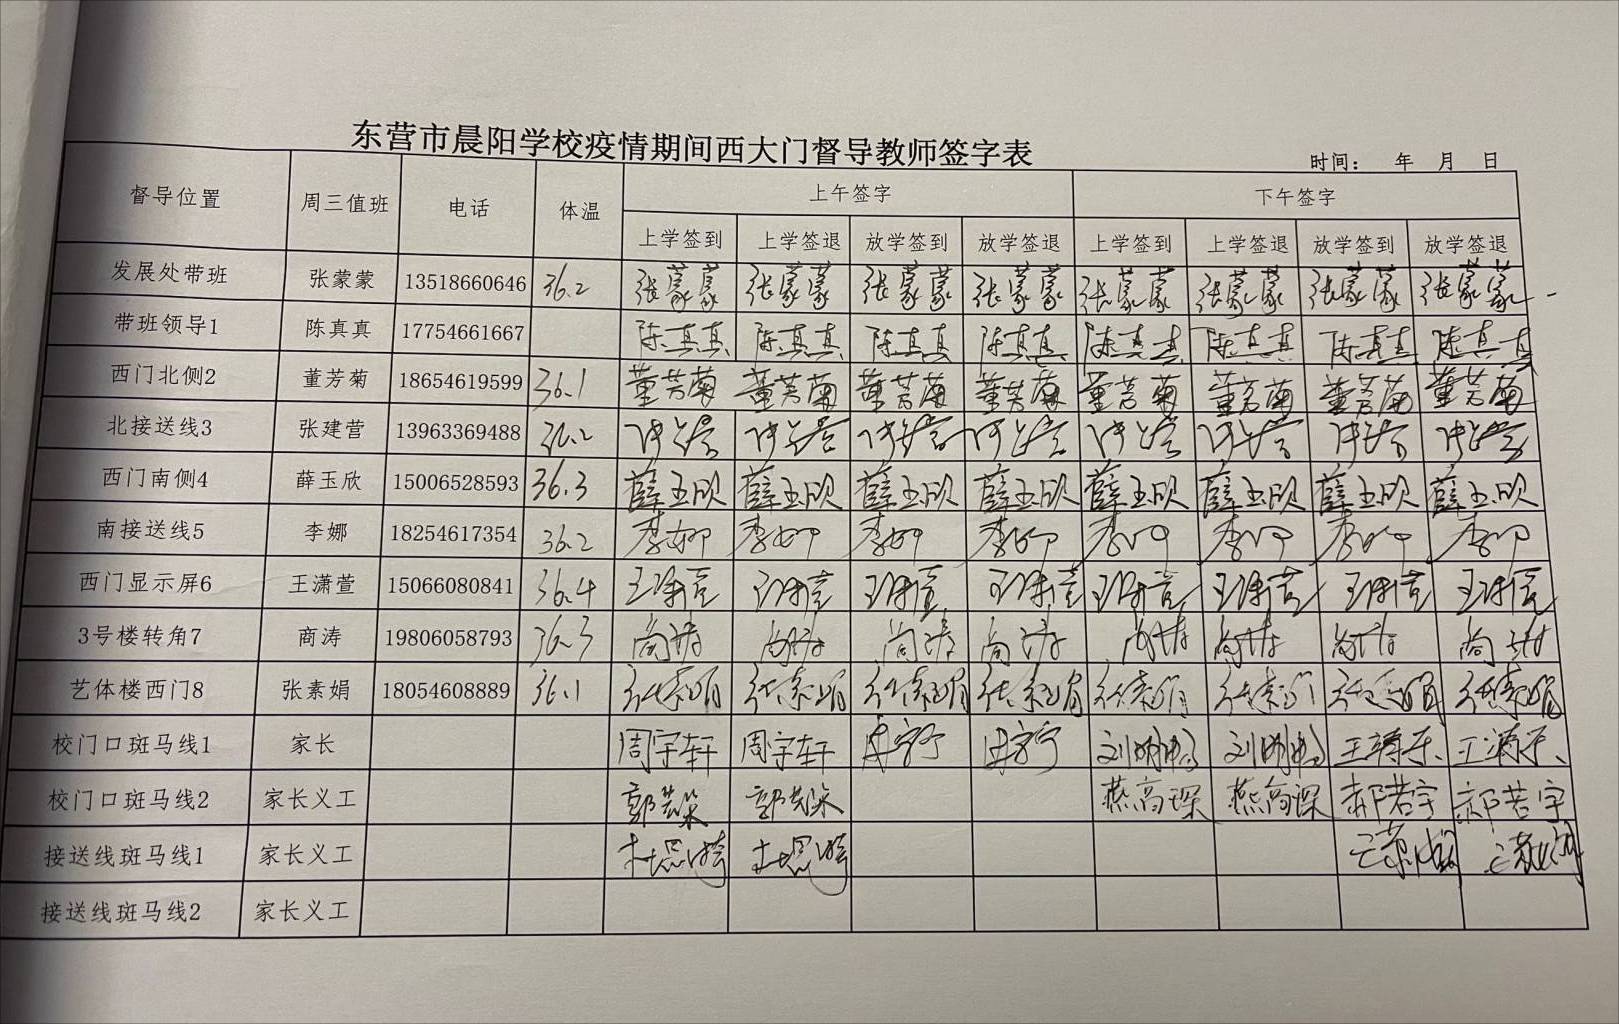 东营市晨阳学校疫情期间西大门督导教师签字表
时间： 年 月 日
督导位置 周三值班 电话 体温 上午签字 下午签字
上学签到 上学签退 放学签到 放学签退 上学签到 上学签退 放学签到 放学签退
发展处带班 张蒙蒙 13518660646 36.2 张蒙蒙 张蒙蒙 张蒙蒙 张蒙蒙 张蒙蒙 张蒙蒙 张蒙蒙 张蒙蒙
带班领导1 陈真真 17754661667 陈真真 陈真真 陈真真 陈真真 陈真真 陈真真 陈真真 陈真真
西门北侧2 董芳菊 18654619599 36.1 董芳菊 董芳菊 董芳菊 董芳菊 董芳菊 董芳菊 董芳菊 董芳菊
北接送线3 张建营 13963369488 36.2
西门南侧4 薛玉欣 15006528593 36.3 薛玉欣 薛玉欣 薛玉欣 薛玉欣 薛玉欣 薛玉欣 薛玉欣 薛玉欣
南接送线5 李娜 18254617354 36.2 李娜 李娜 李娜 李娜 李娜 李娜 李娜 李娜
西门显示屏6 王潇萱 15066080841 36.4 王潇萱 王潇萱 王潇萱 王潇萱 王潇萱 王潇萱 王潇萱 王潇萱
3号楼转角7 商涛 19806058793 36.3 商涛 商涛 商涛 商涛 商涛 商涛 商涛 商涛
艺体楼西门8 张素娟 18054608889 36.1 张素娟 张素娟 张素娟 张素娟 张素娟 张素娟 张素娟 张素娟
校门口斑马线1 家长 周宇轩 周宇轩
校门口斑马线2 家长义工 燕高琛 燕高琛 郝若宇 郝若宇
接送线斑马线1 家长义工
接送线斑马线2 家长义工